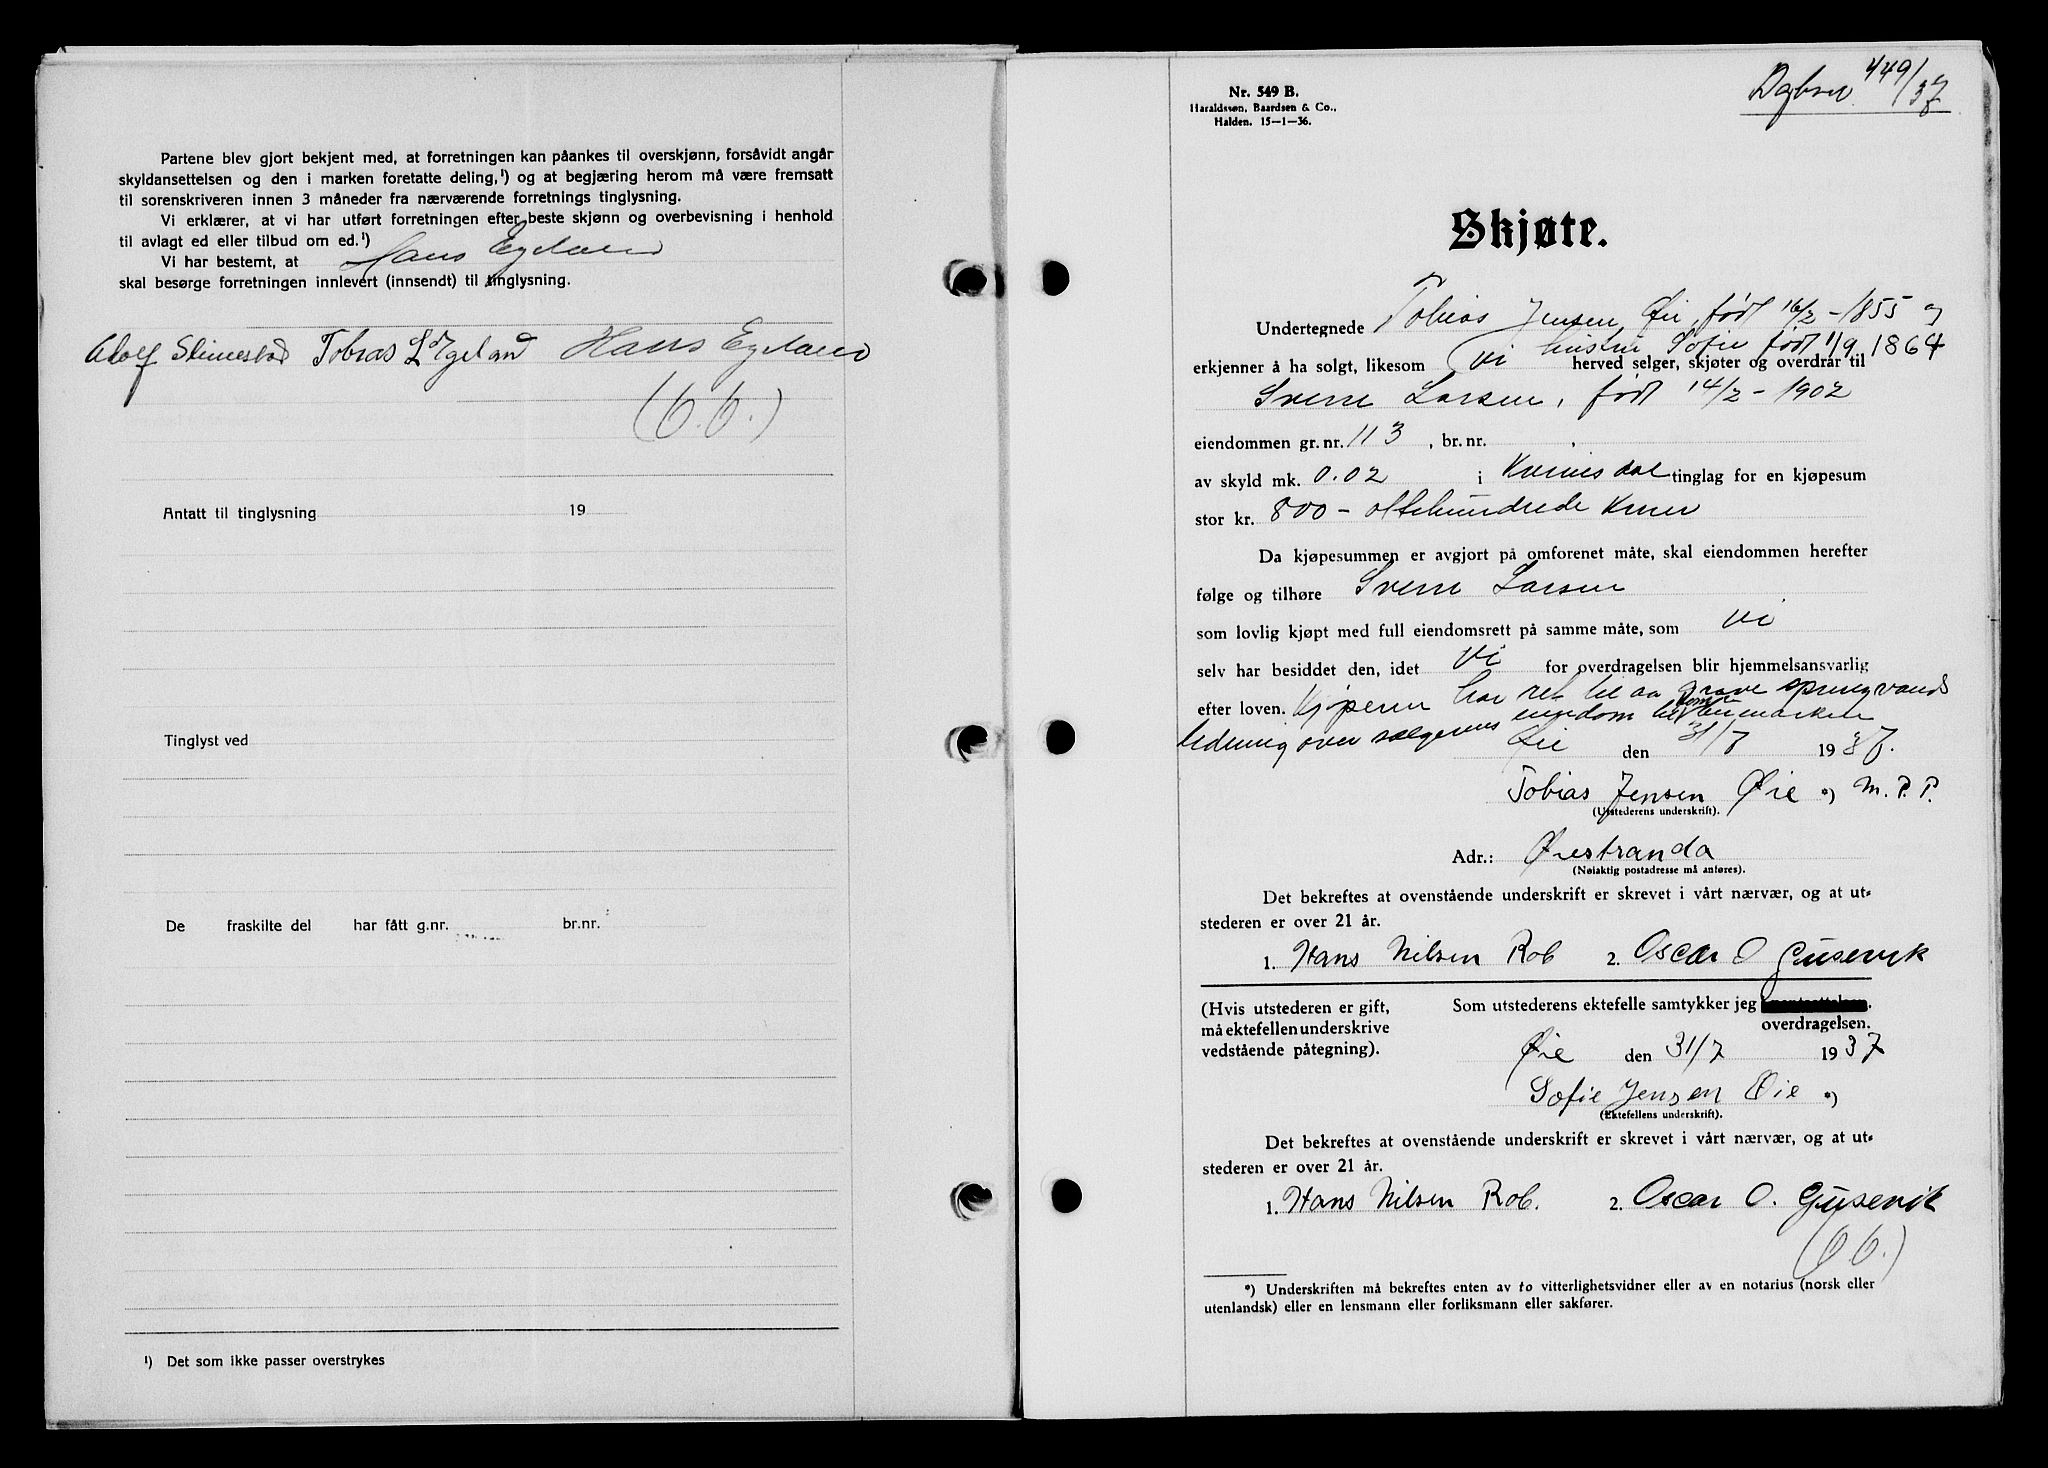 Partene blev gjort bekjent med, at forretningen kan påankes til overskjønn, forsåvidt angår
skyldansettelsen og den i marken foretatte deling,¹) og at begjæring herom må være fremsatt
til sorenskriveren innen 3 måneder fra nærværende forretnings tinglysning.
Vi erklærer, at vi har utført forretningen efter beste skjønn og overbevisning i henhold
til avlagt ed eller tilbud om ed.¹)
Vi har bestemt, at Hans Egeland
skal besørge forretningen innlevert (innsendt) til tinglysning.
Adolf Skimestad Tobias L Egeland Hans Egeland
Antatt til tinglysning 19
Tinglyst ved
De fraskilte del har fått g.nr. br.nr.
¹) Det som ikke passer overstrykes
Dagbok 449/37
Nr. 549 B.
Haraldssøn, Baardsen & Co.,
Halden. 15—1—36.
Skjøte.
Undertegnede Tobias Jensen Øie, født 16/2 - 1855 og
hustru Sofie født 11/9 1864
erkjenner å ha solgt, likesom vi herved selger, skjøter og overdrar til
Sverre Larsen, født 14/2 - 1902
eiendommen gr. nr. 113, br. nr. .
av skyld mk. 0.02 i Kvinesdal tinglag for en kjøpesum
stor kr. 800 - ottehundrede kroner
Da kjøpesummen er avgjort på omforenet måte, skal eiendommen herefter
følge og tilhøre Sverre Larsen
som lovlig kjøpt med full eiendomsrett på samme måte, som vi
selv har besiddet den, idet vi for overdragelsen blir hjemmelsansvarlig
efter loven. Kjøperen har ret til aa grave springvands
ledning over sælgerens eiendom til utmarken
Øie den 31/7 1937.
Tobias Jensen Øie *) M. P. P.
(Utstederens underskrift).
Adr.: Øiestranda
(Nøiaktig postadresse må anføres).
Det bekreftes at ovenstående underskrift er skrevet i vårt nærvær, og at ut-
stederen er over 21 år.
1. Hans Nilsen Rob 2. Oscar O Gusevik
(Hvis utstederen er gift,
må ektefellen underskrive
vedstående påtegning).
Som utstederens ektefelle samtykker jeg
overdragelsen.
Øie den 31/7 1937
Sofie Jensen Øie *)
(Ektefellens underskrift).
Det bekreftes at ovenstående underskrift er skrevet i vårt nærvær, og at ut-
stederen er over 21 år.
1. Hans Nilsen Rob. 2. Oscar O. Gusevik
*) Underskriften må bekreftes enten av to vitterlighetsvidner eller av en notarius (norsk eller
utenlandsk) eller en lensmann eller forliksmann eller sakfører.